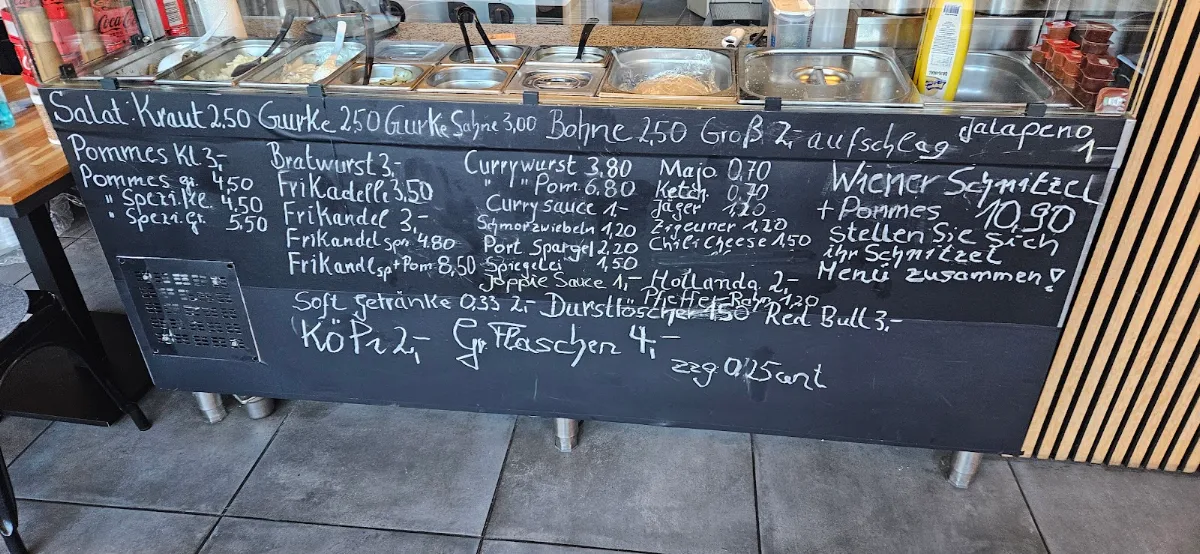 Salat. Kraut 2,50 Gurke 2,50 Gurke Sahne 3,00 Bohne 2,50 Groß 2,- aufschlag Jalapeno 1-
Pommes Kl 3,-
Pommes gr. 4,50
" Spezi.Kl. 4,50
" Spezi.gr. 5,50
Bratwurst 3,-
FriKadelle 3,50
FriKandel 3,-
FriKandel spz 4.80
FriKandl sp + Pom 8,50
Currywurst 3.80
" " Pom. 6.80
Curry sauce 1,-
Schmorzwiebeln 1,20
Port Spargel 2,20
Spiegelei 1,50
Joppie Sauce 1,-
Majo 0,70
Ketch 0,70
Jäger 1,20
Zigeuner 1,20
Chili Cheese 1,50
Hollanda 2,-
Pfeffer-Rahm 1,20
Wiener Schnitzel
+ Pommes 10,90
stellen Sie sich
ihr Schnitzel
Menü zusammen!
Soft getränke 0,33 2,- Durstlöscher 1,50 Red Bull 3,-
KöPi 2,- Gr. Flaschen 4,-
zzg 0,25cent
Coca-Cola